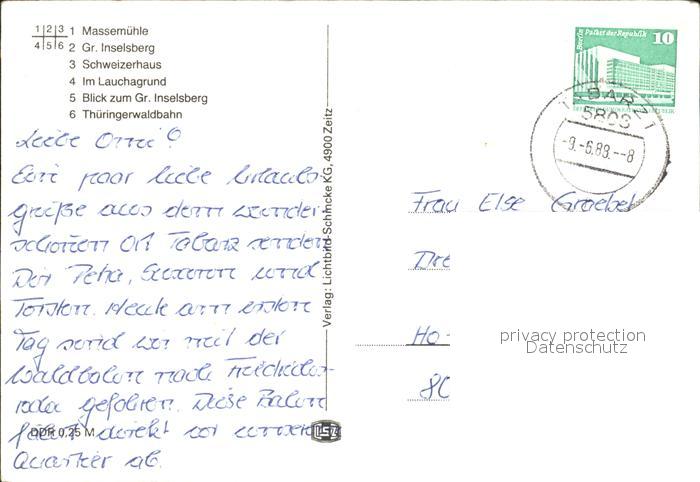 1 2 3
4 5 6
1 Massemühle
2 Gr. Inselsberg
3 Schweizerhaus
4 Im Lauchagrund
5 Blick zum Gr. Inselsberg
6 Thüringerwaldbahn
Liebe Omi!
Ein paar liebe Urlaubs-
grüße aus dem wunder-
schönen Ort Tabarz senden
Dir Petra, Susann und
Torsten. Heute am ersten
Tag sind wir mit der
Waldbahn nach Friedrichs-
roda gefahren. Diese Bahn
fährt direkt vor unserem
Quartier ab.
DDR 0,25 M
Verlag: Lichtbild-Schincke KG, 4900 Zeitz
Berlin Palast der Republik 10
TABARZ 1
5808
-9.-6.89.--8
Frau Else Groebel
Dre
Ho-
80
privacy protection
Datenschutz